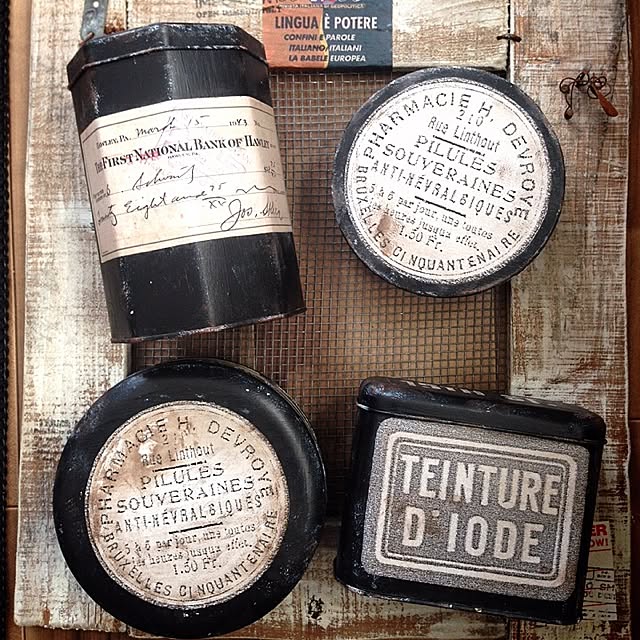 LINGUA È POTERE
CONFINI E PAROLE
ITALIANO/ITALIANI
LA BABELE EUROPEA
OPEN
March 15
THE FIRST NATIONAL BANK OF HAWLEY
Eight and
PHARMACIE H. DEVROYE
210
Rue Linthout
PILULES
SOUVERAINES
ANTI-NÉVRALGIQUES
5 à 6 par jour, une toutes
les heures jusque effet.
1.50 Fr.
BRUXELLES CINQUANTENAIRE
PHARMACIE H. DEVROYE
210
Rue Linthout
PILULES
SOUVERAINES
ANTI-NÉVRALGIQUES
5 à 6 par jour, une toutes
les heures jusque effet.
1.50 Fr.
BRUXELLES CINQUANTENAIRE
TEINTURE
D'IODE